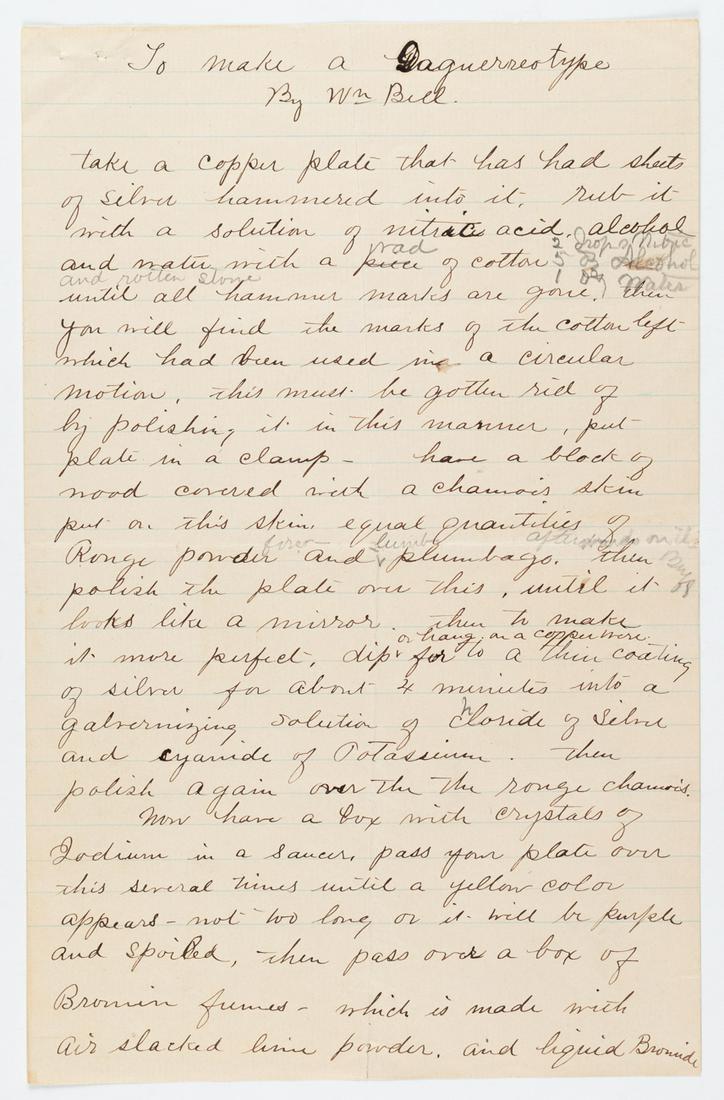 To make a Daguerreotype
By Wm Bell.
take a copper plate that has had sheets
of Silver hammered into it. rub it
with a solution of nitric acid, alcohol
wad
and water with a piece of cotton
5 Alcohol
Water
and rotten stone
until all hammer marks are gone. then
you will find the marks of the cotton left
which had been used in a circular
motion, this must be gotten rid of
by polishing it in this manner, put
plate in a clamp - have a block of
wood covered with a chamois skin
put on this skin equal quantities of
afterwards on the
Rouge powder and plumbago. then
Buff
polish the plate over this, until it
looks like a mirror. then to make
or hang on a copper wire
it more perfect, dip for to a thin coating
of silver for about 4 minutes into a
galvernizing solution of Chloride of Silver
and cyanide of Potassium. then
polish again over the the rouge chamois.
Now have a box with crystals of
Iodium in a saucer, pass your plate over
this several times until a yellow color
appears - not too long or it will be purple
and spoiled, then pass over a box of
Bromin fumes - which is made with
air slacked lime powder. and liquid Bromide